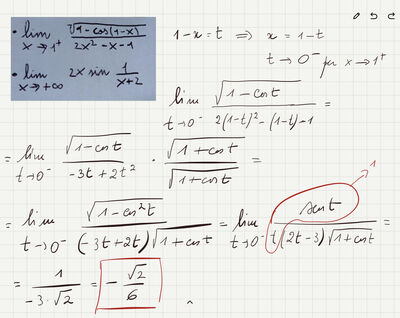 • lim x→1⁺ √(1-cos(1-x)) / (2x²-x-1)
• lim x→+∞ 2x sin 1/(x+2)
1-x=t ⇒ x=1-t
t→0⁻ per x→1⁺
lim t→0⁻ √(1-cost) / (2(1-t)²-(1-t)-1) =
= lim t→0⁻ √(1-cost) / (-3t+2t²) · √(1+cost) / √(1+cost) =
= lim t→0⁻ √(1-cos²t) / ((-3t+2t)√(1+cost)) = lim t→0⁻ sent / (t(2t-3)√(1+cost)) = 1
= 1 / (-3·√2) = - √2/6